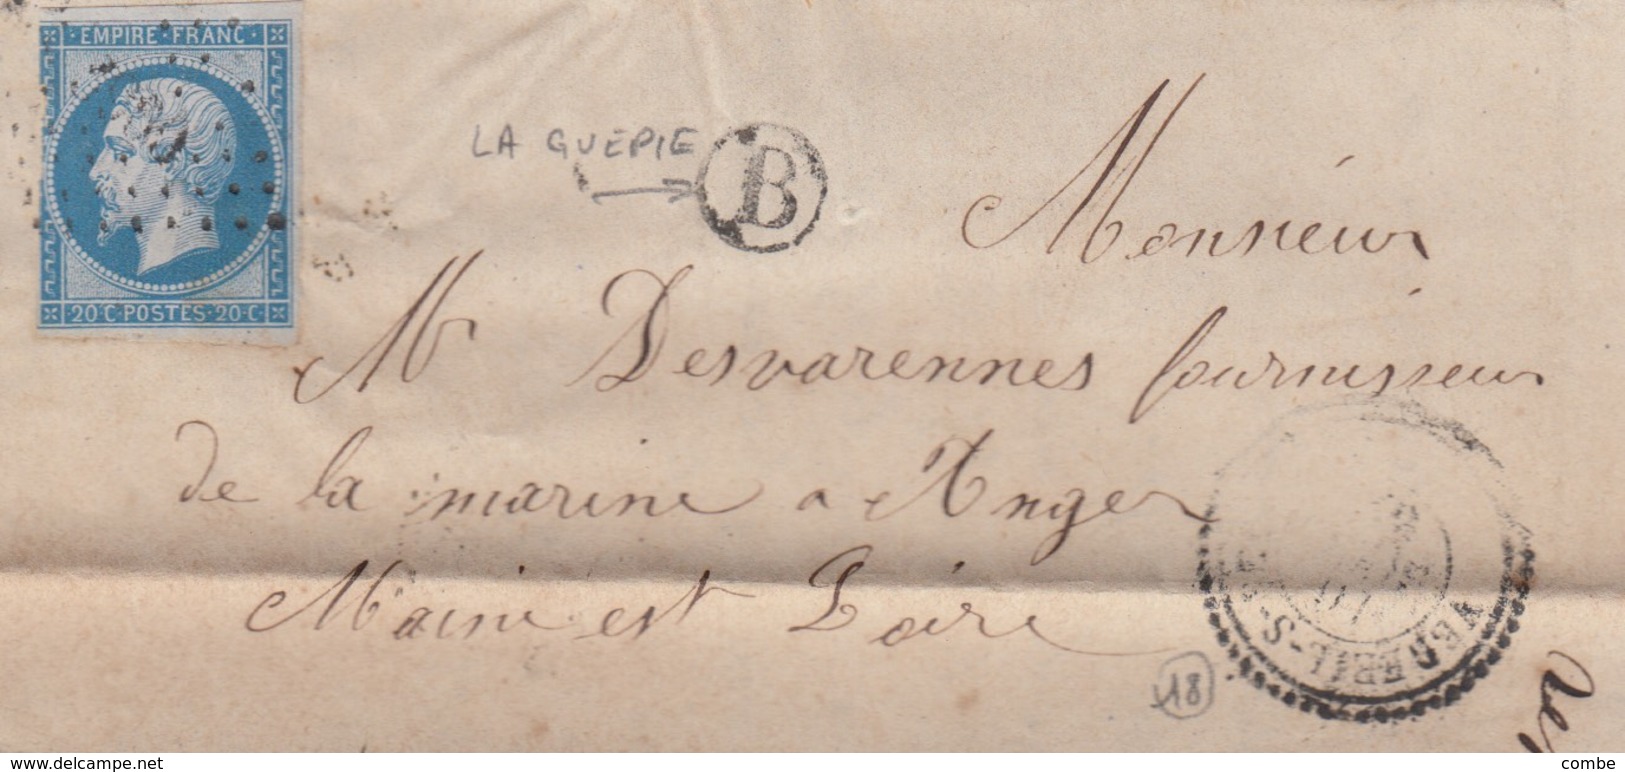 · EMPIRE · FRANC ·
20 · C · POSTES · 20 · C
LA GUEPIE
B
Monsieur
Mr Desvarennes fournisseur
de la marine a Anger
Maine est Loire
18
www.delcampe.net
combe